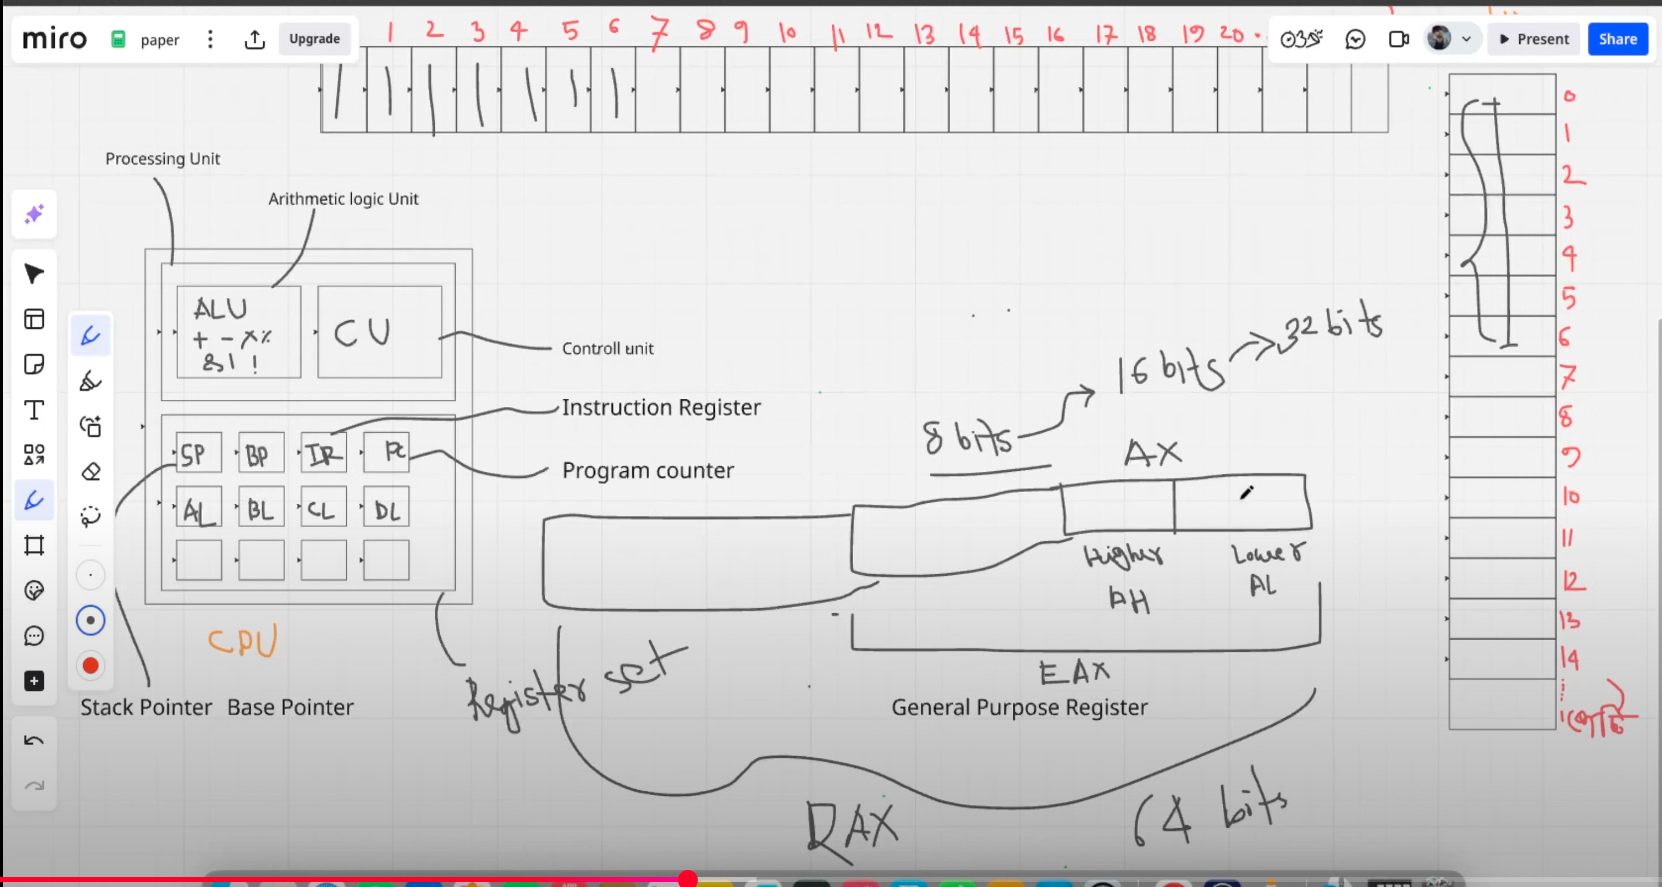 miro
paper
Upgrade
1 2 3 4 5 6 7 8 9 10 11 12 13 14 15 16 17 18 19 20
Present
Share
Processing Unit
Arithmetic logic Unit
ALU
+ - × %
& | !
CU
Controll unit
Instruction Register
Program counter
SP BP IR PC
AL BL CL DL
CPU
Stack Pointer
Base Pointer
Register set
8 bits
16 bits
32 bits
AX
Higher
AH
Lower
AL
EAX
General Purpose Register
RAX
64 bits
0
1
2
3
4
5
6
7
8
9
10
11
12
13
14